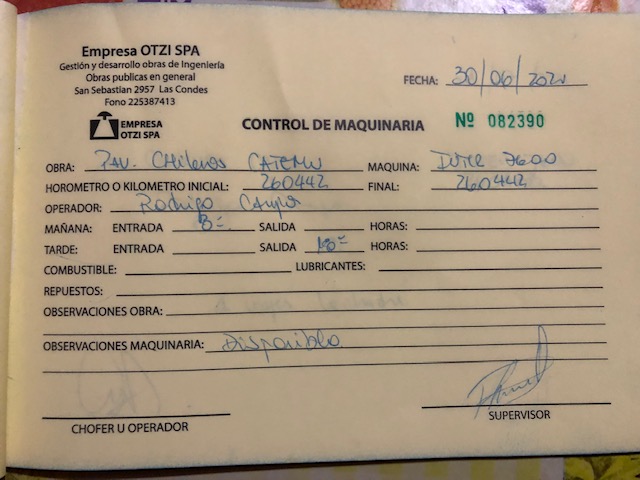 Empresa OTZI SPA
Gestión y desarrollo obras de Ingeniería
Obras publicas en general
San Sebastian 2957 Las Condes
Fono 225387413
FECHA: 30/06/2021
EMPRESA
OTZI SPA
CONTROL DE MAQUINARIA
Nº 082390
OBRA: Pav. Chilenos CATEMU MAQUINA: INTER 7600
HOROMETRO O KILOMETRO INICIAL: 260442 FINAL: 260442
OPERADOR: Rodrigo
MAÑANA: ENTRADA 8= SALIDA HORAS:
TARDE: ENTRADA SALIDA 18= HORAS:
COMBUSTIBLE: LUBRICANTES:
REPUESTOS:
OBSERVACIONES OBRA:
OBSERVACIONES MAQUINARIA: Disponible
CHOFER U OPERADOR
SUPERVISOR